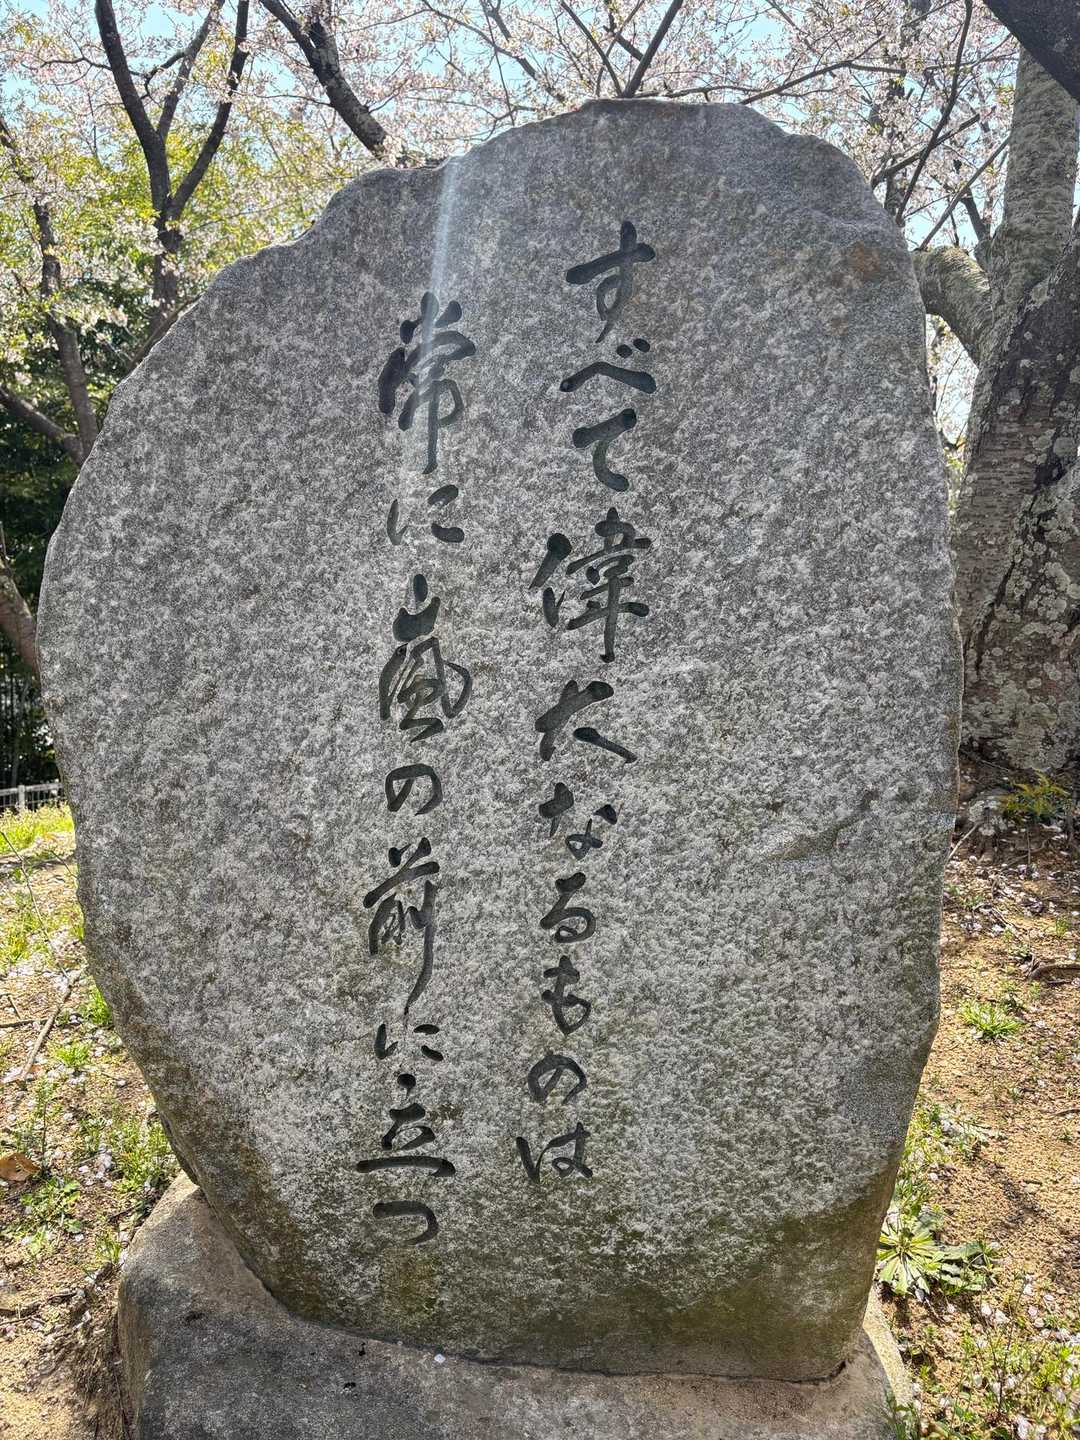 すべて偉大なるものは
常に嵐の前に立つ